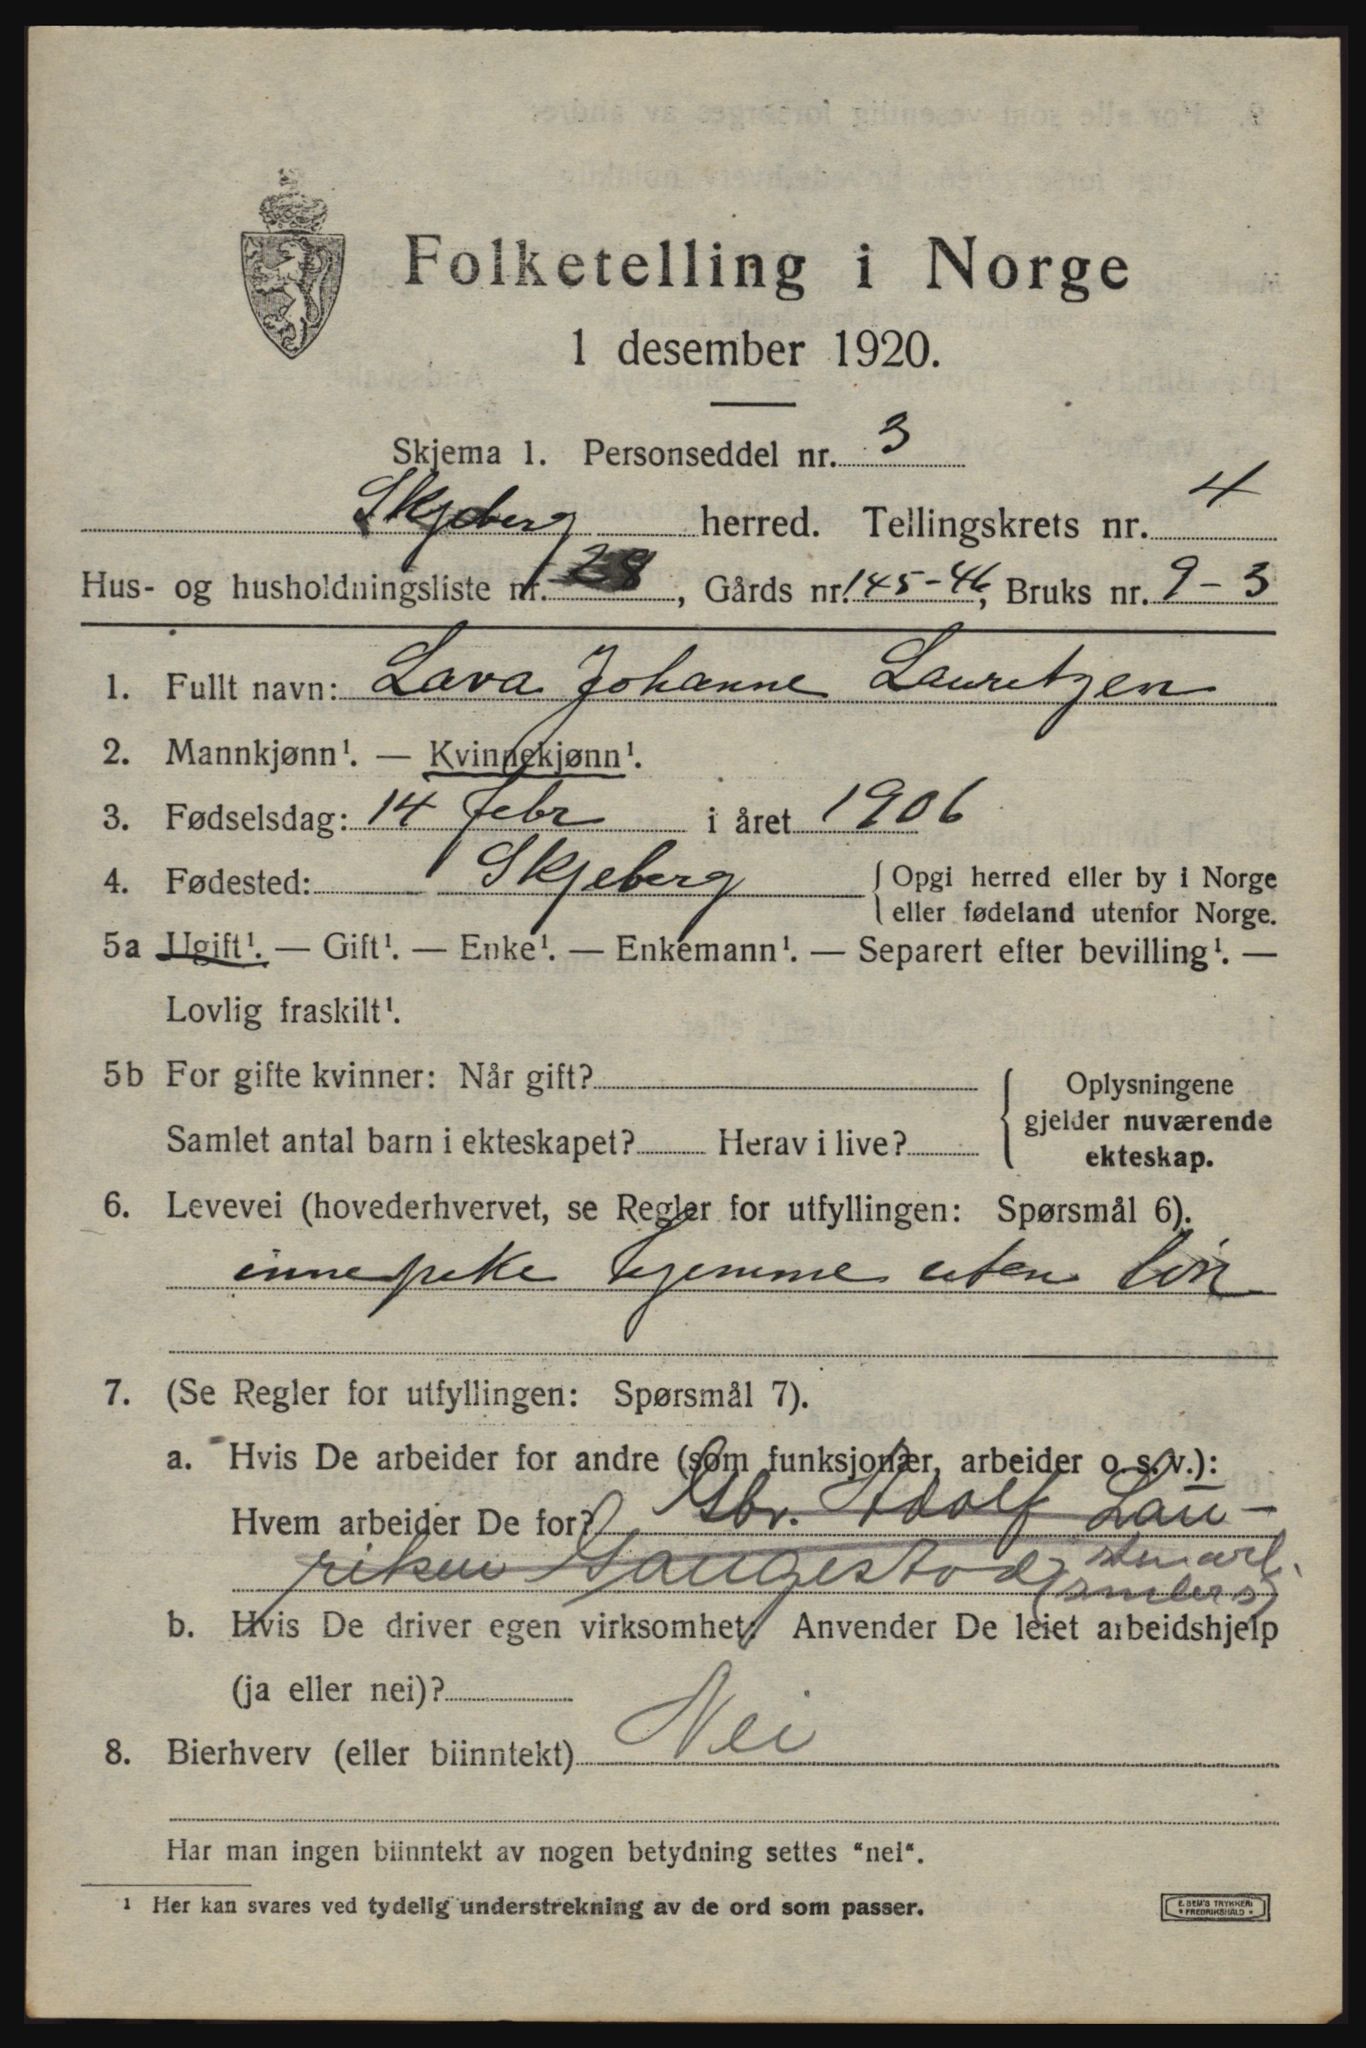 Folketelling i Norge
1 desember 1920.
Skjema 1. Personseddel nr. 3
Skjeberg herred. Tellingskrets nr. 4
Hus- og husholdningsliste nr. 28, Gårds nr. 145-46, Bruks nr. 9-3
1. Fullt navn: Lava Johanne Lauritzen
2. Mannkjønn¹. — Kvinnekjønn¹.
3. Fødselsdag: 14 febr i året 1906
4. Fødested: Skjeberg { Opgi herred eller by i Norge
eller fødeland utenfor Norge.
5a Ugift¹. — Gift¹. — Enke¹. — Enkemann¹. — Separert efter bevilling¹. —
Lovlig fraskilt¹.
5b For gifte kvinner: Når gift? { Oplysningene
gjelder nuværende
Samlet antal barn i ekteskapet? Herav i live?
ekteskap.
6. Levevei (hovederhvervet, se Regler for utfyllingen: Spørsmål 6).
innepike hjemme uten lön
7. (Se Regler for utfyllingen: Spørsmål 7).
a. Hvis De arbeider for andre (som funksjonær, arbeider o. s. v.):
Hvem arbeider De for? Gbr. Adolf Lau-
ritzen Gaugestad
b. Hvis De driver egen virksomhet: Anvender De leiet arbeidshjelp
(ja eller nei)?
8. Bierhverv (eller biinntekt) Nei
Har man ingen biinntekt av nogen betydning settes "nei".
¹ Her kan svares ved tydelig understrekning av de ord som passer.
E. SEM'S TRYKKERI
FREDRIKSHALD